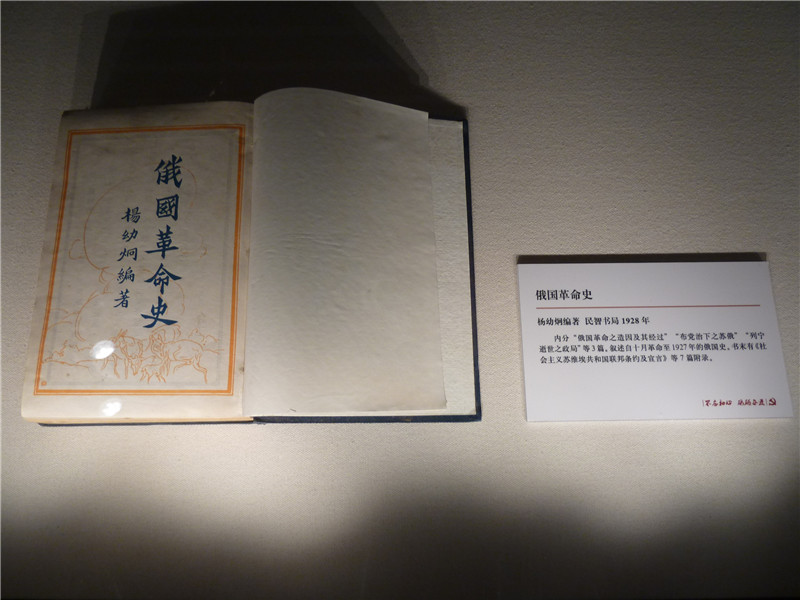 俄國革命史
楊幼炯編著
俄国革命史
杨幼炯编著 民智书局 1928 年
内分“俄国革命之造因及其经过”“布党治下之苏俄”“列宁
逝世之政局”等 3 篇。叙述自十月革命至 1927 年的俄国史。书末有《社
会主义苏维埃共和国联邦条约及宣言》等 7 篇附录。